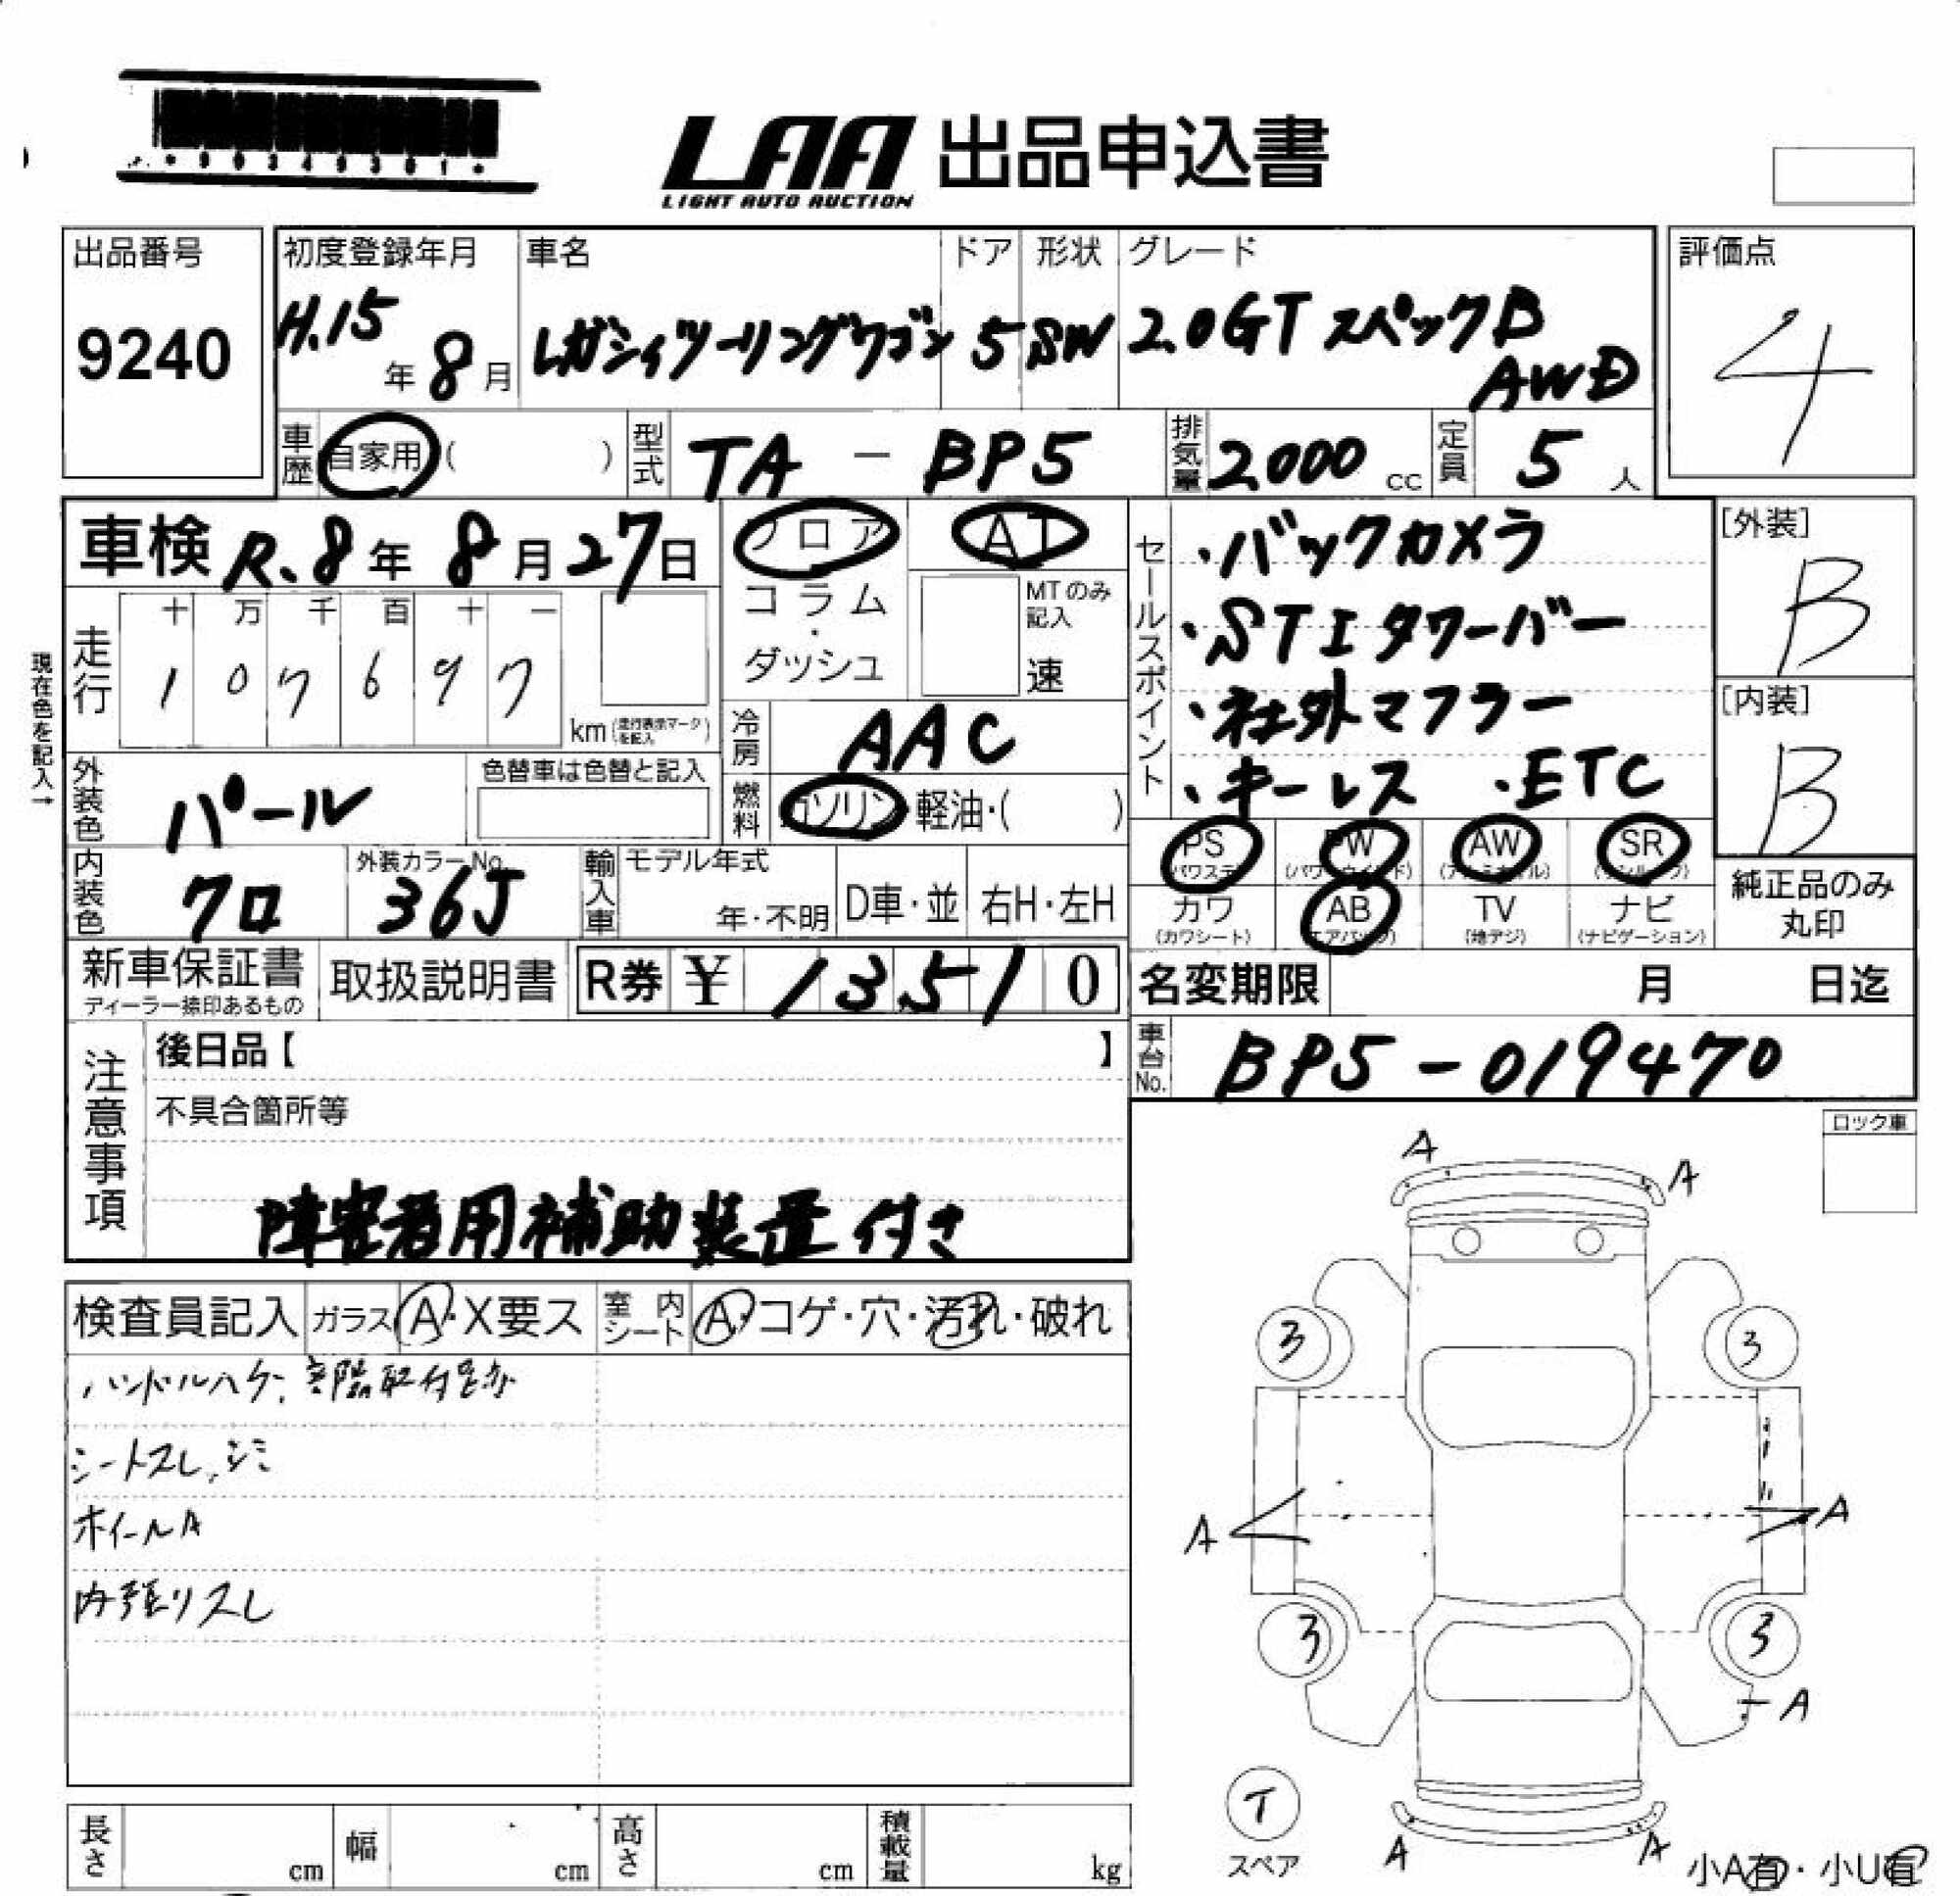 *90349301*
LAA 出品申込書
LIGHT AUTO AUCTION
出品番号
9240
初度登録年月
H.15年 8月
車名
レガシィツーリングワゴン
ドア
5
形状
SW
グレード
2.0GT スペックB
AWD
評価点
4
車歴 自家用 ( )
型式 TA - BP5
排気量 2000 cc
定員 5 人
車検 R.8年 8月27日
フロア
コラム・ダッシュ
AT
MTのみ記入
速
セールスポイント
・バックカメラ
・STIタワーバー
・社外マフラー
・キーレス ・ETC
[外装]
B
[内装]
B
現在色を記入→
走行
十 万 千 百 十 一
1 0 7 6 9 7
km (走行表示マークを記入)
冷房 AAC
燃料 ガソリン・軽油・( )
外装色 パール
色替車は色替と記入
内装色 クロ
外装カラーNo.
36J
輸入車
モデル年式
年・不明
D車・並
右H・左H
PS
(パワステ)
PW
(パワーウインド)
AW
(アルミホイル)
SR
(サンルーフ)
カワ
(カワシート)
AB
(エアバッグ)
TV
(地デジ)
ナビ
(ナビゲーション)
純正品のみ
丸印
新車保証書
ディーラー捺印あるもの
取扱説明書
R券 ¥ 13510
名変期限 月 日迄
注意事項
後日品【 】
不具合箇所等
障害者用補助装置付き
車台No. BP5-019470
ロック車
検査員記入
ガラス A・X要ス
室内シート A・コゲ・穴・汚れ・破れ
ハンドルハゲ、
シートスレ、シミ
ホイールA
内張リスレ
A
A
3
3
A
A
3
3
A
T
スペア
A
A
小A有・小U有
長さ cm
幅 cm
高さ cm
積載量 kg